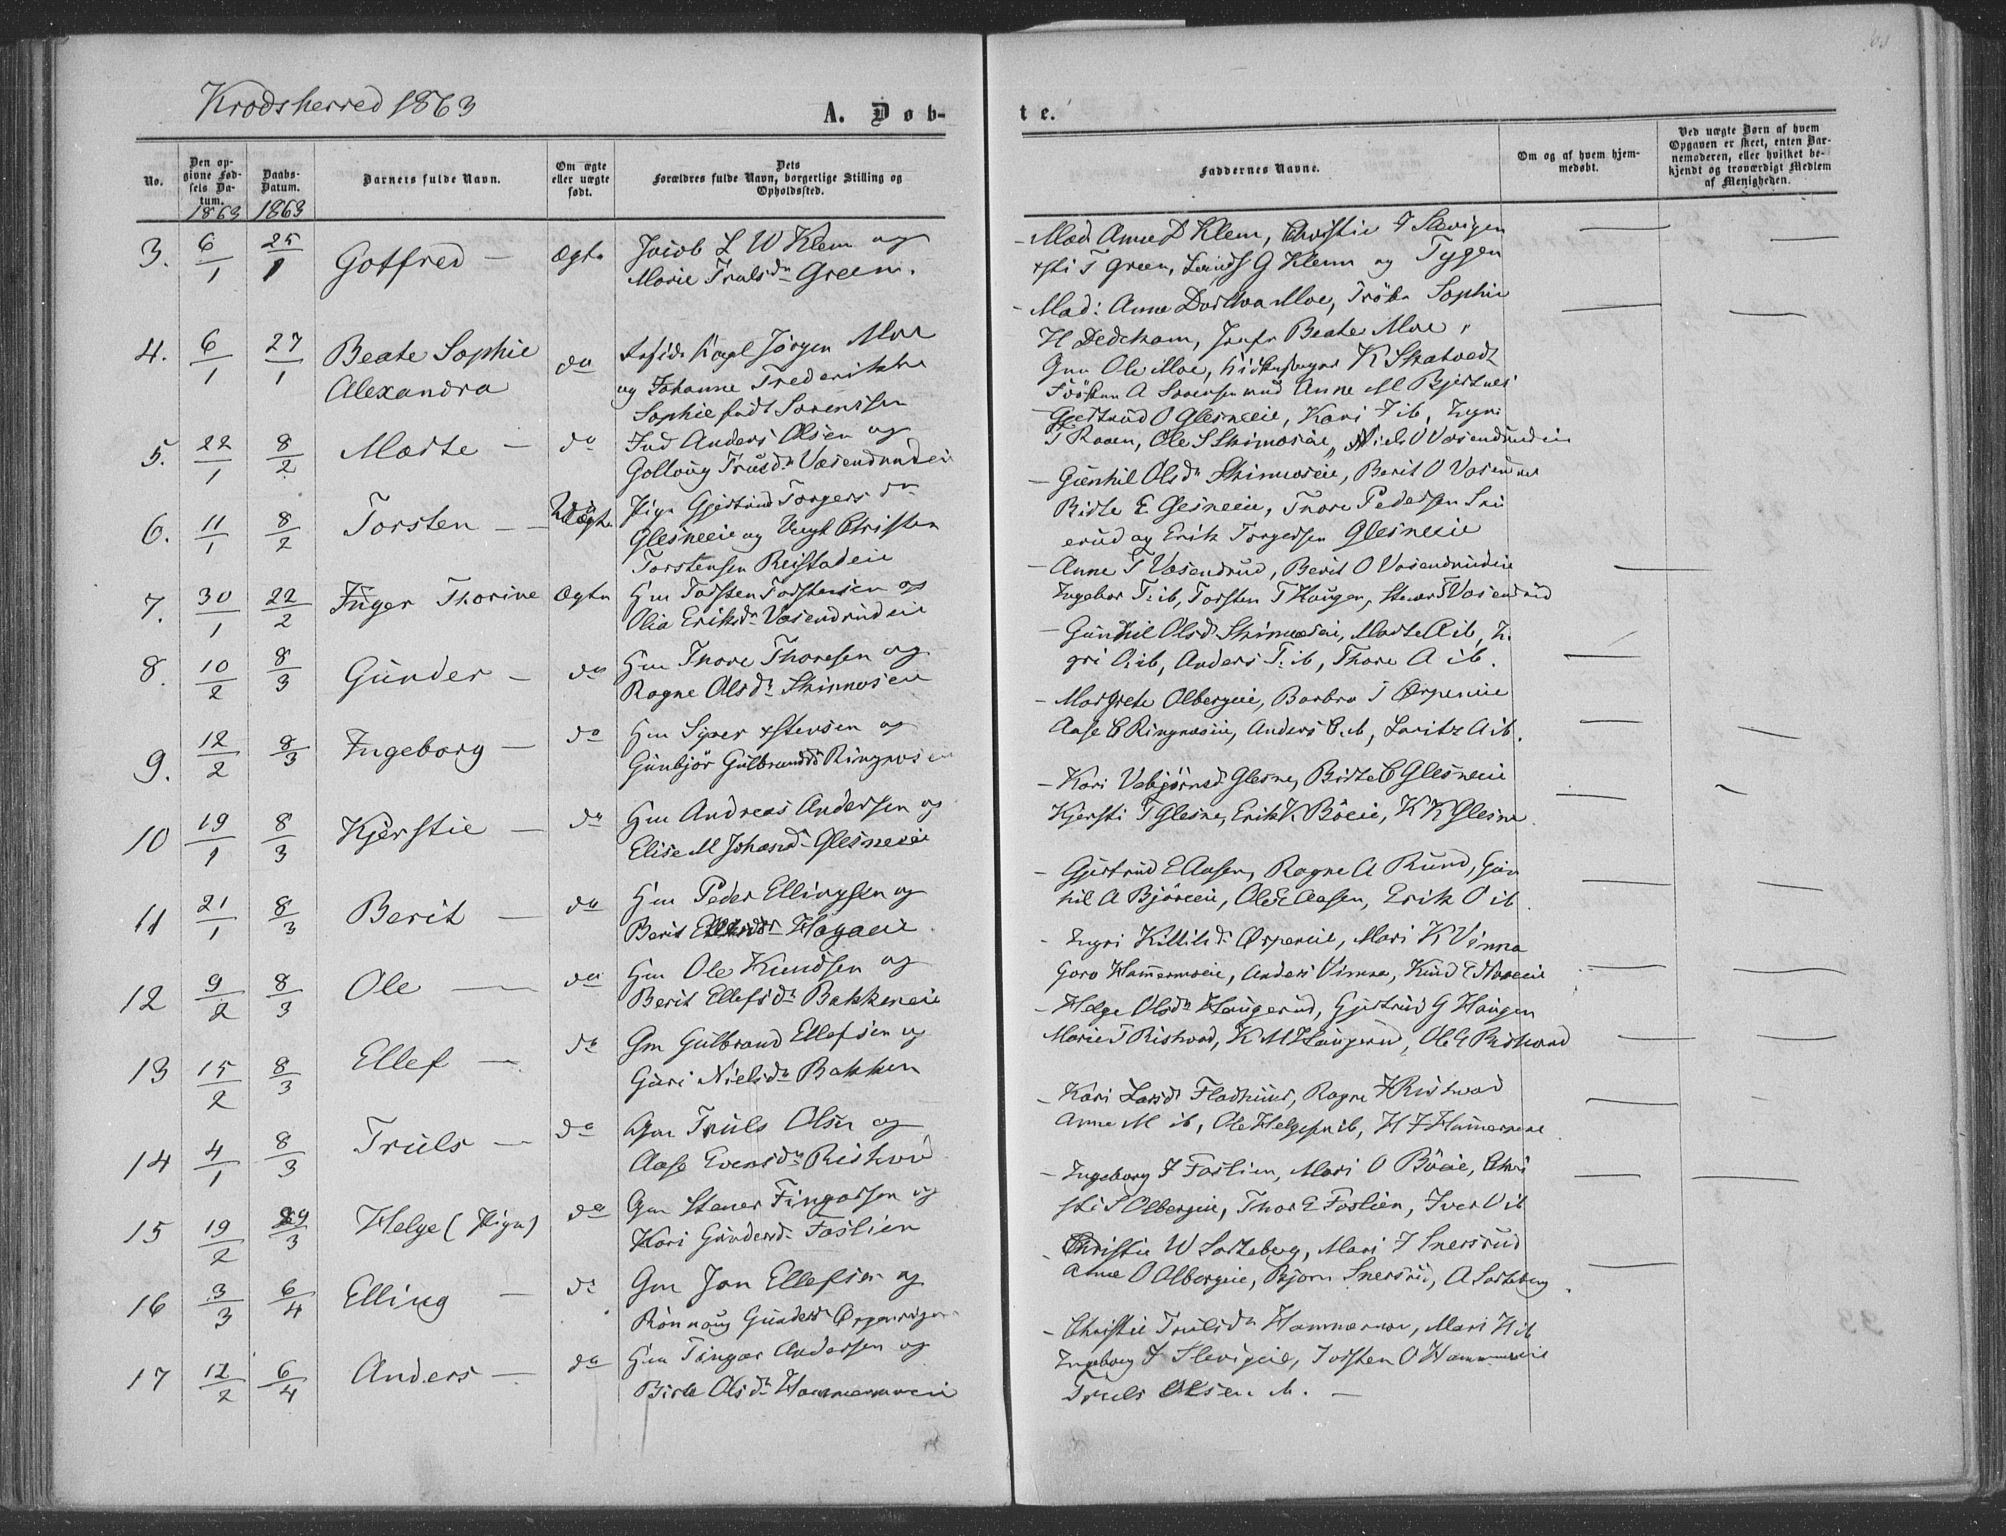 Krodsherred 1863
A. Døb-
te.
No.
Den opgivne Fødsels Datum.
1863
Daabs-Datum.
1863
Barnets fulde Navn.
Om ægte eller uægte født.
Dets Forældres fulde Navn, borgerlige Stilling og Opholdssted.
Faddernes Navne.
Om og af hvem hjemmedøbt.
Ved uægte Børn af hvem Opgaven er skeet, enten Barnemoderen, eller hvilket bekjendt og troværdigt Medlem af Menigheden.
3. 6/1 25/1 Gotfred — Ægte Jacob L W Klem og
Marie Trulsdr Green.
Mad. Anne D Klem, Christie
T Green, G Klem og
4. 6/1 27/1 Beate Sophie
Alexandra
do Jørgen Moe
og Johanne Frederikke
Sophie født Sørenssen
Mad: Anne Moe, Frøkn Sophie
H Dedekam, Jomfr Beate Moe,
Ole Moe, K Skatvedt
A Sørensen Anne M Bjertnes
5. 22/1 8/2 Marte — do Ind Anders Olsen og
Gollaug Trulsdr Væsendrudeie
Gjertrud O Glesneeie, Kari ib, Ingri
T Roaen, Ole S Skinnæseie, Niels O Væsendrudeie
6. 11/1 8/2 Torsten — Uægte Pige Gjertrud Torgersdr
Glesneeie og Ungk Christen
Torstensen Reistadeie
Gunhil Olsdr Skinnæseie, Berit O Væsendrud
Birte E Glesneeie, Thore Pedersen
erud og Erik Torgersen Glesneeie
7. 30/1 22/2 Inger Thorine Ægte Hm Torsten Torstensen og
Olia Eriksdr Væsendrudeie
Anne T Væsendrud, Berit O Væsendrudeie
Ingebor T. ib, Torsten T Haugen, Væsendrud
8. 10/2 8/3 Gunder — do Hm Thore Thoresen og
Ragne Olsdr Skinnæseie
Gunhil Olsd Skinnæseie, Marte A ib, In
gri A ib, Anders T. ib, Thore A ib.
9. 12/2 8/3 Ingeborg — do Hm Syver og
Gunbjør Gulbrandsd Ringnæseie
Margrete Olbergeie, Barbro T Ørpeneie
Aase C Ringnæseie, Anders ib, Lavitz A ib.
10 19/1 8/3 Kjerstie — do Hm Andreas Andersen og
Elise M Johansd Glesneeie
Kari Vebjørnsd Glesne, Birte C Glesneeie
Kjersti T Glesne, Erik K. Bøeie, K K Glesne.
11 21/1 8/3 Berit — do Hm Peder Ellingsen og
Berit Hagaeie.
Gjertrud E Aasen, Ragne A Rund, Gun
hil A Bjøreeie, Ole E Aasen, Erik O ib.
12 9/2 8/3 Ole — do Hm Ole Knudsen og
Berit Ellefsdr Bakkeneie
Ingri Kittilsdr Ørpeneie, Mari K Vinna
Goro Hammermoeie, Anders Vinna, Knud
13 15/2 8/3 Ellef — do Gm Gulbrand Ellefsen og
Guri Nielsdr Bakken
Helge Olsdr Haugerud, Gjertrud G Haugen
Marie T Ristvad, K M Haugerud, Ole E Ristvad
14 4/1 8/3 Truls — do Gm Truls Olsen og
Aase Evensdr Ristvad
Kari Larsdr Fladhuus, Ragne H Ristvad
Anne M ib, Ole Helgesen ib,
15 19/2 29/3 Helge (Pige) do Gm Stener Fingarsen og
Kari Gundersd Foslien
Ingeborg J Foslien, Mari O Bøeie, Chri
sti S Olbergeie, Thor E Foslien, Iver O ib
16 3/3 6/4 Elling — do Gm Jon Ellefsen og
Rønnaug Gundersd
Christie W Sorteberg, Mari J Snersrud
Anne O Olbergeie, Bjørn Snersrud, A Sorteberg.
17 12/2 6/4 Anders — do Hm Fingar Andersen og
Birte Olsdr Hammermoeie
Christie Trulsdr Hammermoe, Mari H ib
Ingeborg J Slevigeie, Torsten O Hammermoeie
Truls Olsen ib. —